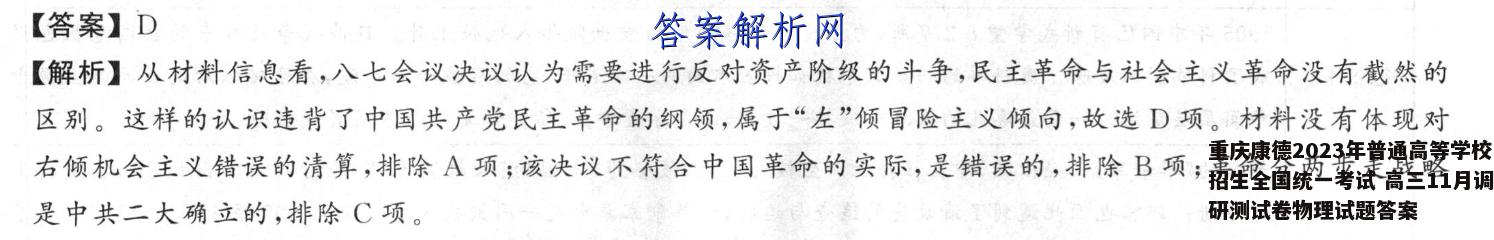 【答案】D
答案解析网
【解析】从材料信息看,八七会议决议认为需要进行反对资产阶级的斗争,民主革命与社会主义革命没有截然的
区别。这样的认识违背了中国共产党民主革命的纲领,属于“左”倾冒险主义倾向,故选D项。材料没有体现对
右倾机会主义错误的清算,排除A项;该决议不符合中国革命的实际,是错误的,排除B项;革命分两步走战略
是中共二大确立的,排除C项。
重庆康德2023年普通高等学校
招生全国统一考试 高三11月调
研测试卷物理试题答案